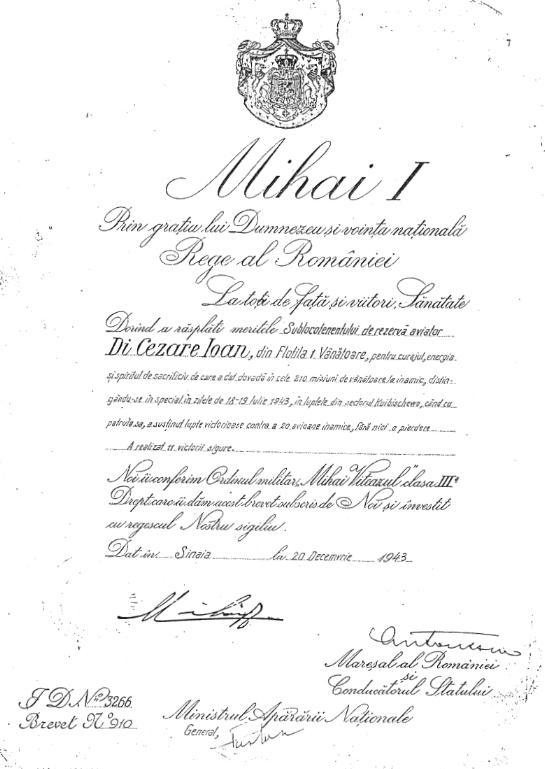 Mihai I
Prin grația lui Dumnezeu și voința națională
Rege al României
La toți de față și viitori, Sănătate
Dorind a răsplăti meritele Sublocotenentului de rezervă aviator
Di Cezare Ioan, din Flotila 1. Vânătoare, pentru curajul, energia
și spiritul de sacrificiu de care a dat dovadă în cele 210 misiuni de vânătoare la inamic, distin-
gându-se în special în zilele de 18-19 Iulie 1943, în luptele din sectorul Kuibischewo, când cu
patrula sa, a susținut lupte victorioase contra a 20 avioane inamice, fără nici o pierdere
A realizat 11 victorii sigure.
Noi îi conferim Ordinul militar „Mihai Viteazul" clasa III a
Drept care îi dăm acest brevet subscris de Noi și investit
cu regescul Nostru sigiliu.
Dat în Sinaia la 20 Decemvrie 1943
Mihai
Antonescu
Mareșal al României
și
Conducătorul Statului
I D. No. 3266
Brevet No. 910
Ministrul Apărării Naționale
General,